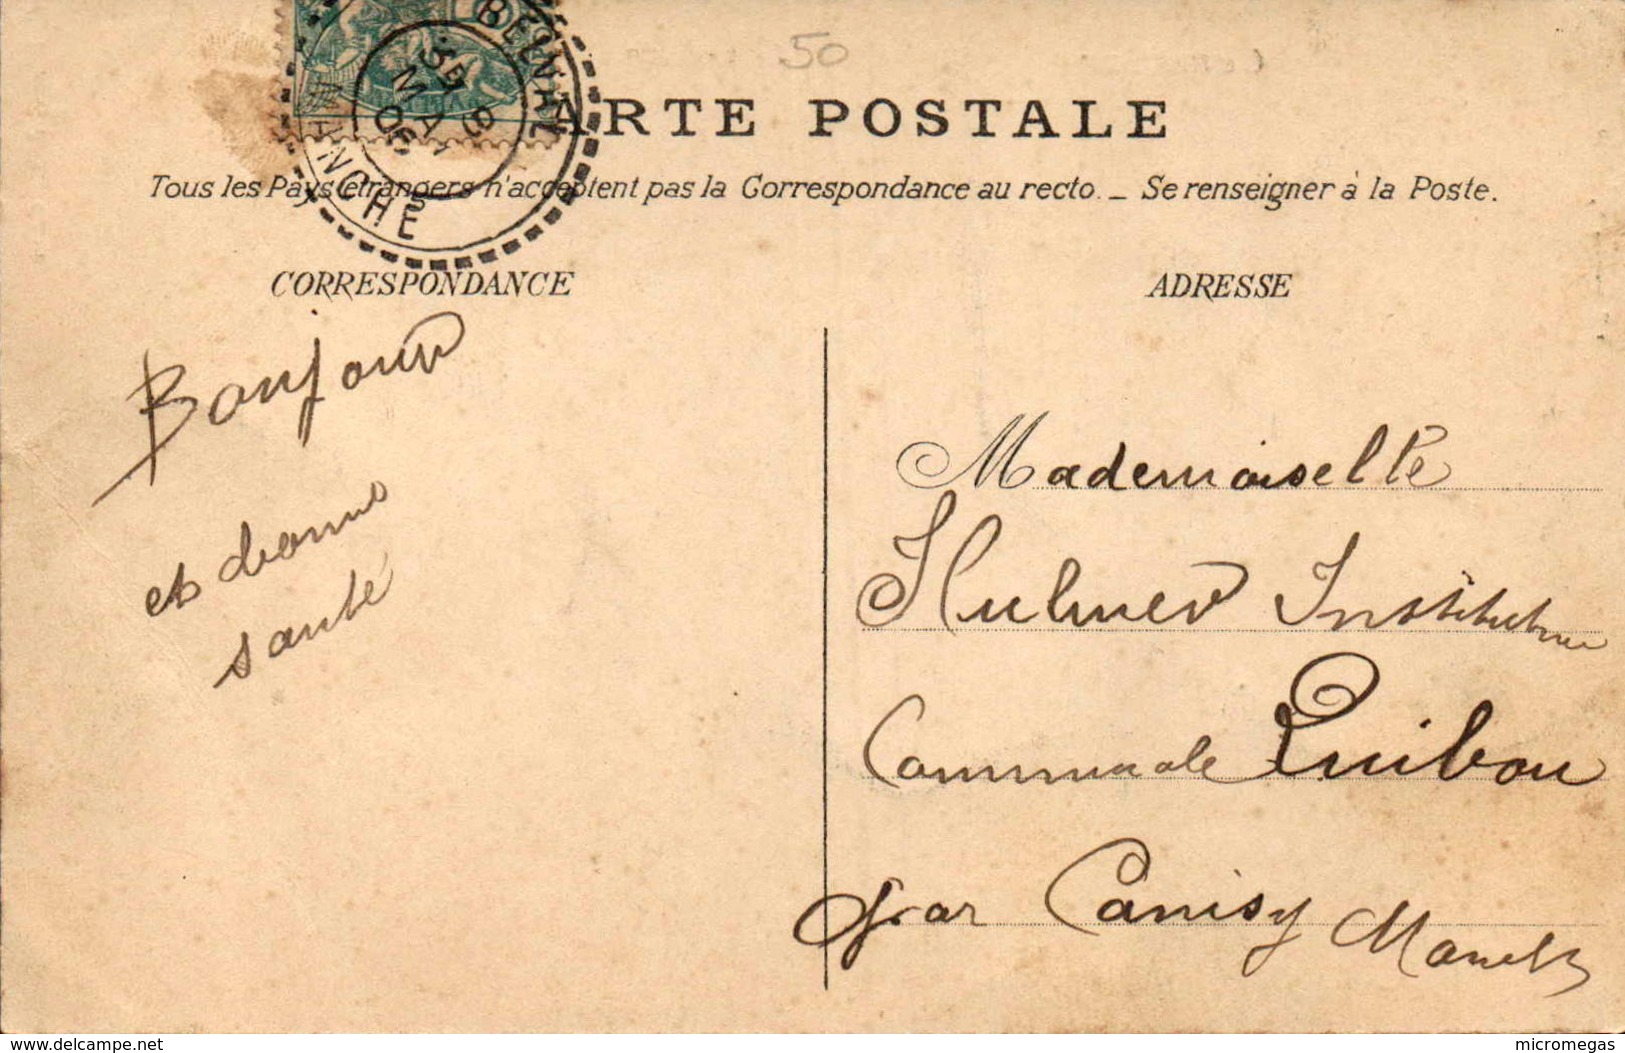 50
CARTE POSTALE
Tous les Pays étrangers n'acceptent pas la Correspondance au recto. _ Se renseigner à la Poste.
BELVAL
MANCHE
CORRESPONDANCE
ADRESSE
Bonjour
et bonne
santé
Mademoiselle
Hulmer Institutrice
Communale Quibou
par Canisy Manche
www.delcampe.net
micromegas